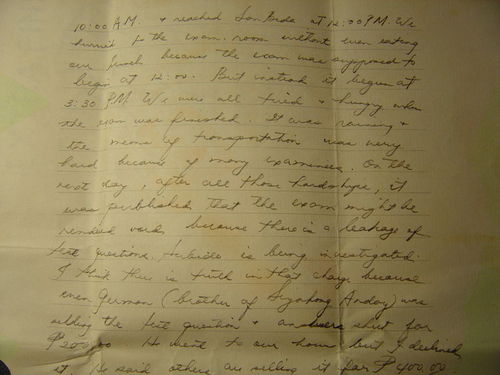 10:00 A.M. & reached San Beda at 12:00 P.M. We
hurried to the exam. room without even eating
our lunch because the exam was supposed to
begin at 12:00. But instead it began at
3:30 P.M. We were all tired & hungry when
the exam was finished. It was raining &
the means of transportation was very
hard because of many examinees. On the
next day, after all those hardships, it
was published that the exam might be
rendered void because there is a leakage of
test questions. is being investigated.
I think there is truth in that charge because
even German (brother of Anday) was
selling the test question & answers sheet for
₱200.00 He went to our house but I declined
it. He said others are selling it for ₱400.00